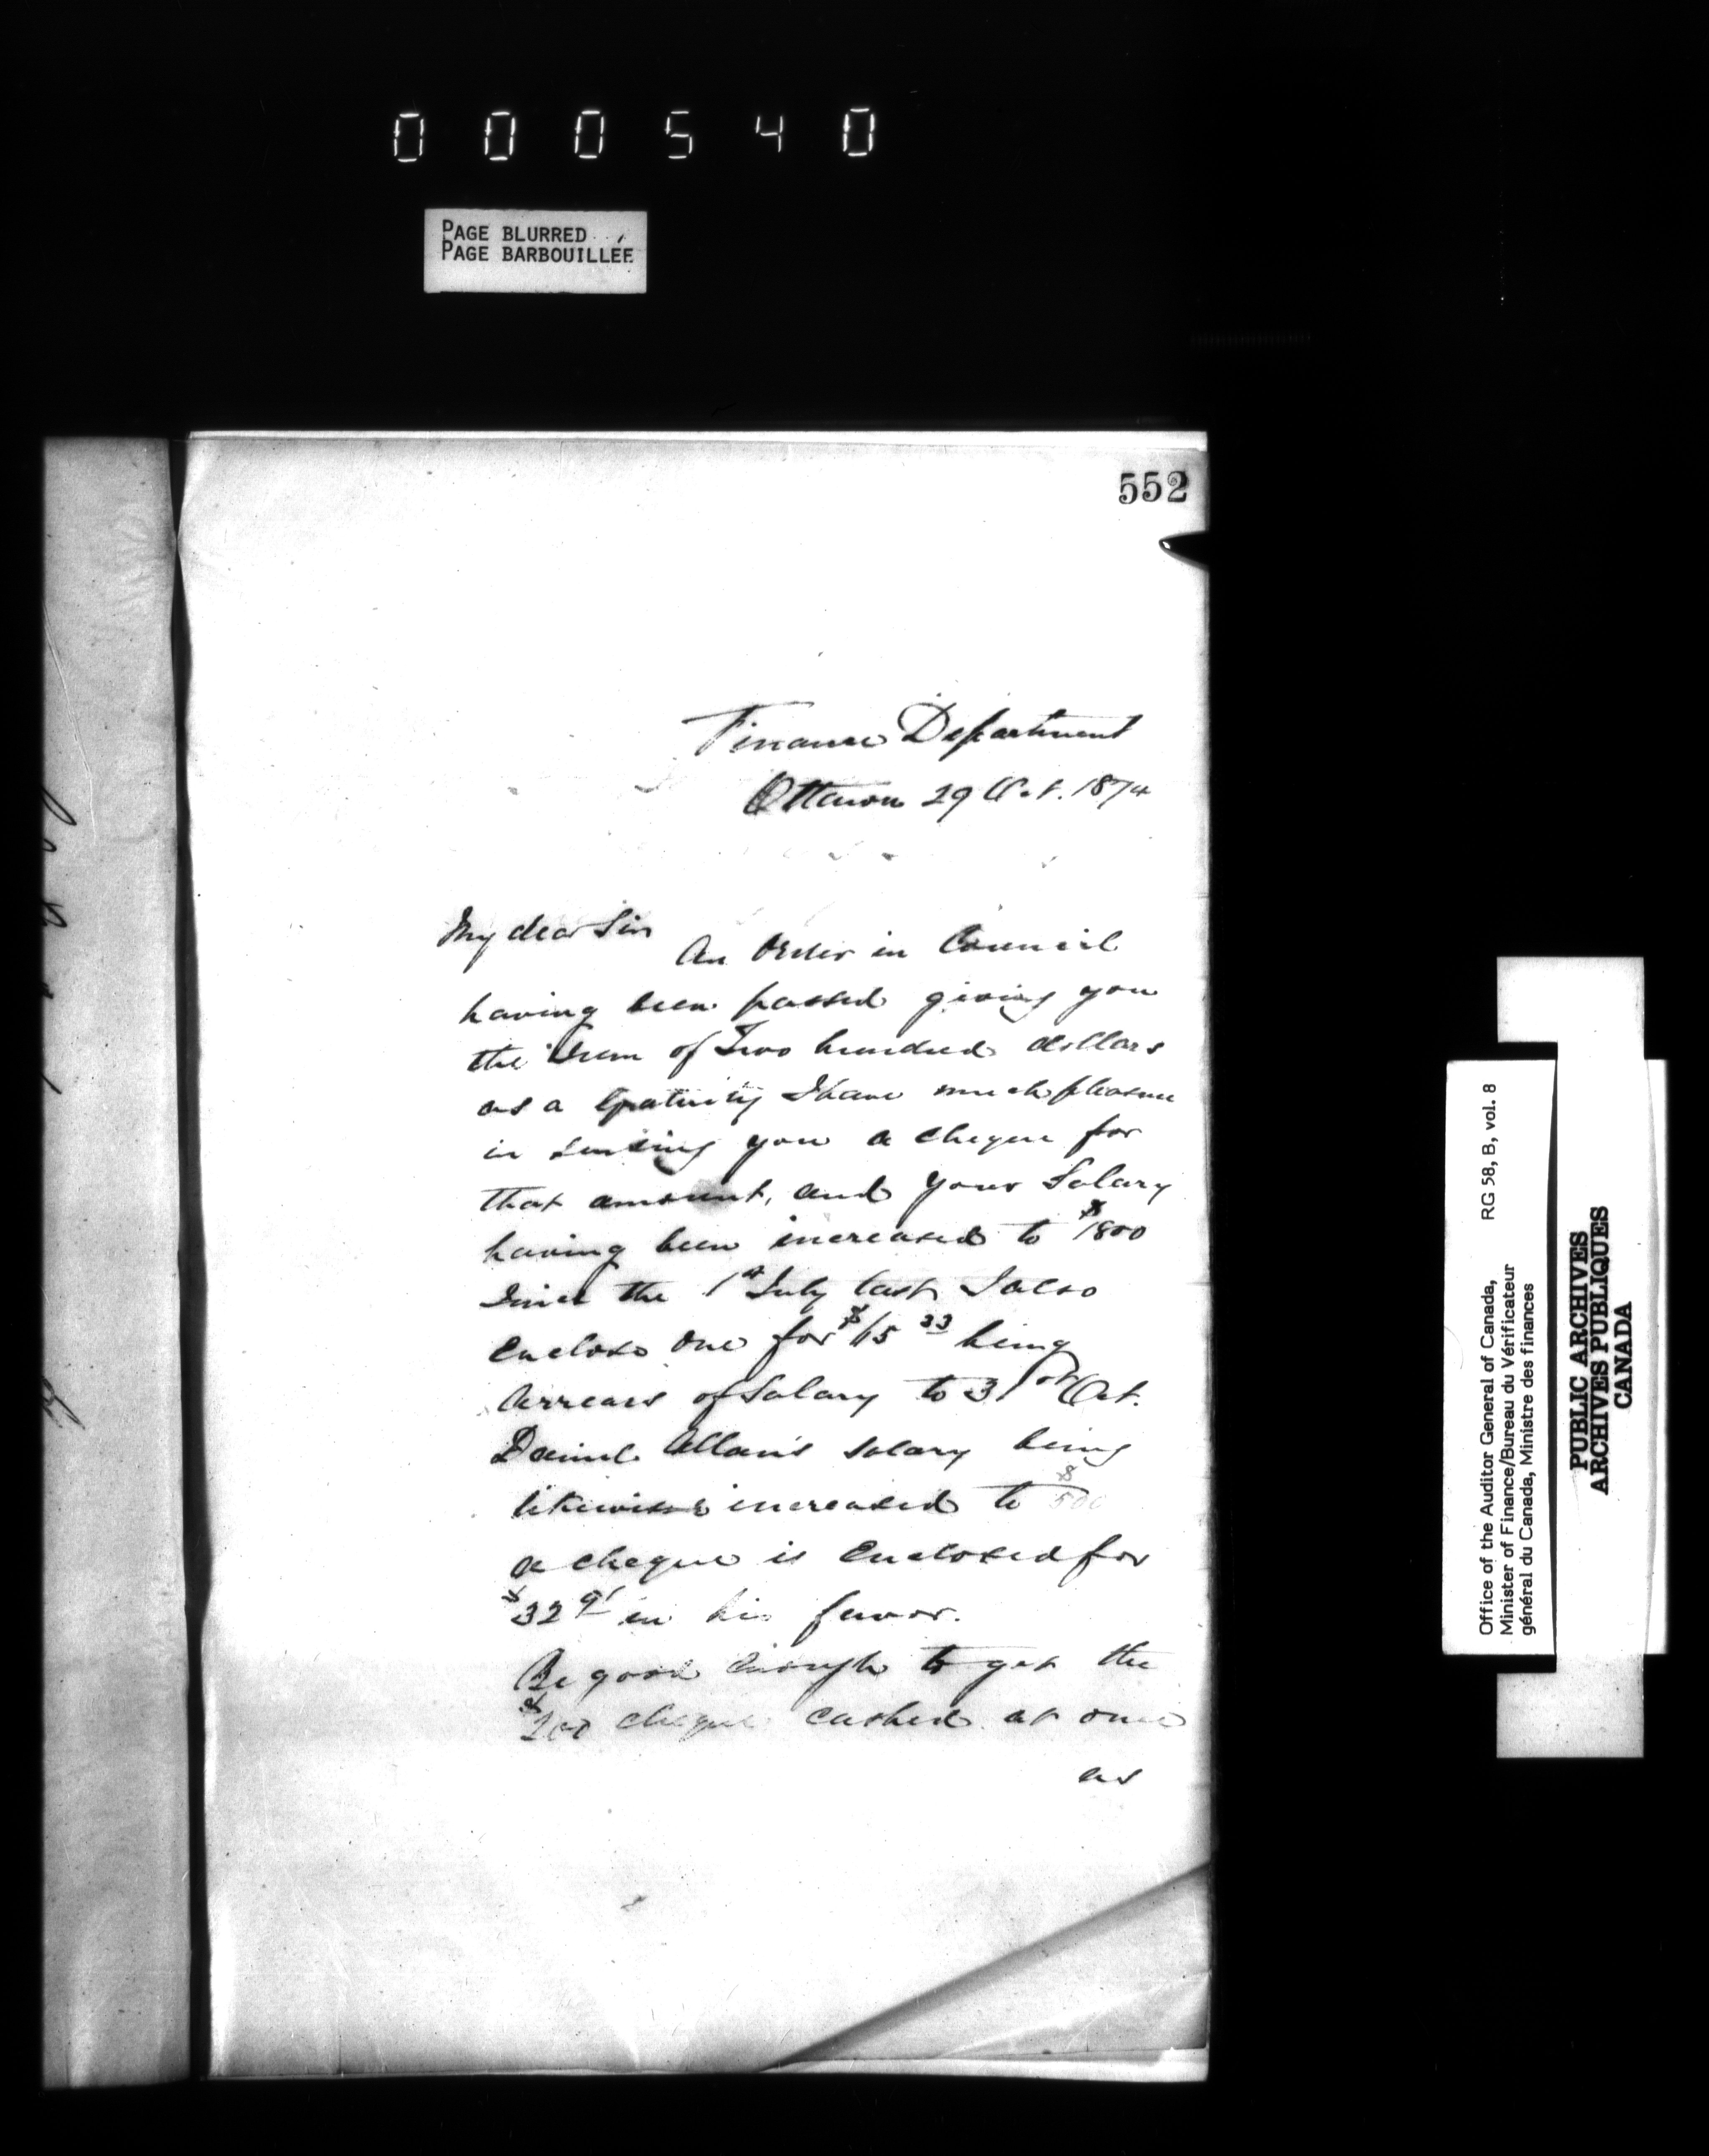 000540
PAGE BLURRED
PAGE BARBOUILLÉE
552
Finance Department
Ottawa 29 Oct. 1874
My dear Sir
An Order in Council
having been passed giving you
the Sum of Two hundred dollars
as a Gratuity I have much pleasure
in sending you a cheque for
that amount, and your Salary
having been increased to $1800
Since the 1st July last, I also
Enclose one for $115 33 being
Arrears of Salary to 31st Oct.
Daniel Allan's salary being
likewise increased to $500
a cheque is Enclosed for
$32 91 in his favor.
Be good enough to get the
$200 cheque cashed at once
as
Office of the Auditor General of Canada, RG 58, B, vol. 8
Minister of Finance/Bureau du Vérificateur
général du Canada, Ministre des finances
PUBLIC ARCHIVES
ARCHIVES PUBLIQUES
CANADA